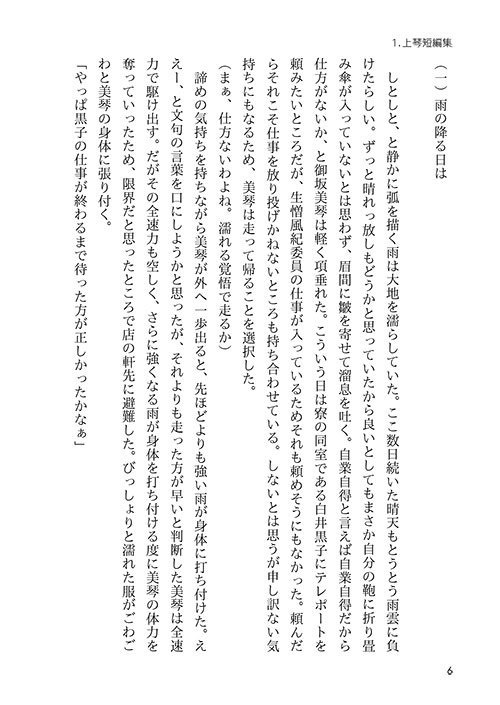 1. 上琴短編集
（一）雨の降る日は
しとしと、と静かに弧を描く雨は大地を濡らしていた。ここ数日続いた晴天もとうとう雨雲に負
けたらしい。ずっと晴れっ放しもどうかと思っていたから良いとしてもまさか自分の鞄に折り畳
み傘が入っていないとは思わず、眉間に皺を寄せて溜息を吐く。自業自得と言えば自業自得だから
仕方がないか、と御坂美琴は軽く項垂れた。こういう日は寮の同室である白井黒子にテレポートを
頼みたいところだが、生憎風紀委員の仕事が入っているためそれも頼めそうにもなかった。頼んだ
らそれこそ仕事を放り投げかねないところも持ち合わせている。しないとは思うが申し訳ない気
持ちにもなるため、美琴は走って帰ることを選択した。
（まぁ、仕方ないわよね。濡れる覚悟で走るか）
諦めの気持ちを持ちながら美琴が外へ一歩出ると、先ほどよりも強い雨が身体に打ち付けた。え
えー、と文句の言葉を口にしようかと思ったが、それよりも走った方が早いと判断した美琴は全速
力で駆け出す。だがその全速力も空しく、さらに強くなる雨が身体を打ち付ける度に美琴の体力を
奪っていったため、限界だと思ったところで店の軒先に避難した。びっしょりと濡れた服がごわご
わと美琴の身体に張り付く。
「やっぱ黒子の仕事が終わるまで待った方が正しかったかなぁ」
6